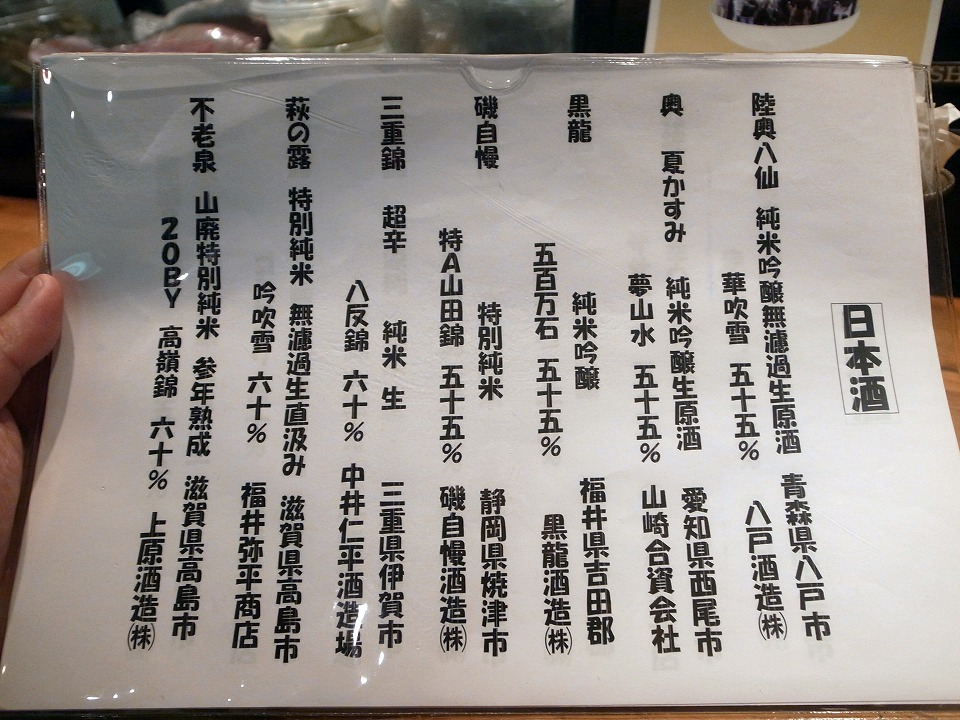 日本酒
陸奥八仙 純米吟醸無濾過生原酒 青森県八戸市
華吹雪 五十五% 八戸酒造㈱
奥 夏かすみ 純米吟醸生原酒 愛知県西尾市
夢山水 五十五% 山崎合資会社
黒龍 純米吟醸 福井県吉田郡
五百万石 五十五% 黒龍酒造㈱
磯自慢 特別純米 静岡県焼津市
特A山田錦 五十五% 磯自慢酒造㈱
三重錦 超辛 純米 生 三重県伊賀市
八反錦 六十% 中井仁平酒造場
萩の露 特別純米 無濾過生直汲み 滋賀県高島市
吟吹雪 六十% 福井弥平商店
不老泉 山廃特別純米 参年熟成 滋賀県高島市
20BY 高嶺錦 六十% 上原酒造㈱
SH